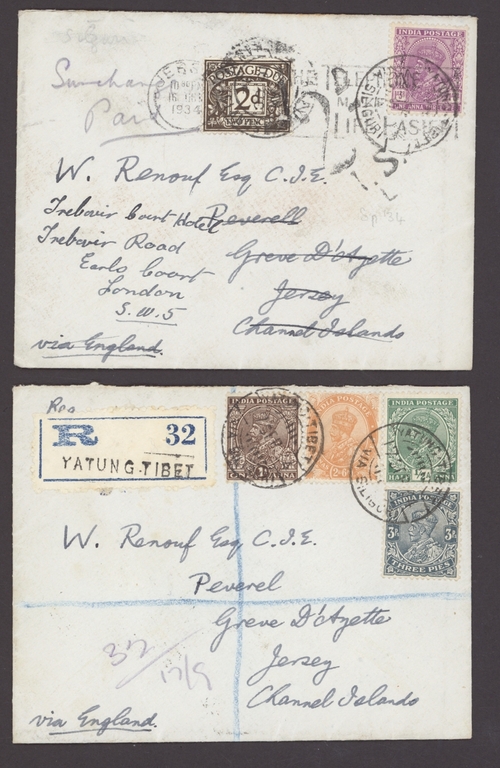 INDIA POSTAGE
POSTAGE DUE
2d
JERSEY
1934
Paid
W. Renouf Esq C.I.E.
Trebovir Court Hotel Peverell
Trebovir Road Greve D'Azette
Earls Court Jersey
London Channel Islands
S.W.5
via England.
Sp '34
R 32
YATUNG-TIBET
INDIA POSTAGE
INDIA POSTAGE
INDIA POSTAGE
INDIA POSTAGE
3p
THREE PIES
YATUNG
VIA SILIGURI
W. Renouf Esq C.I.E.
Peverel
Greve D'Azette
Jersey
Channel Islands
via England.